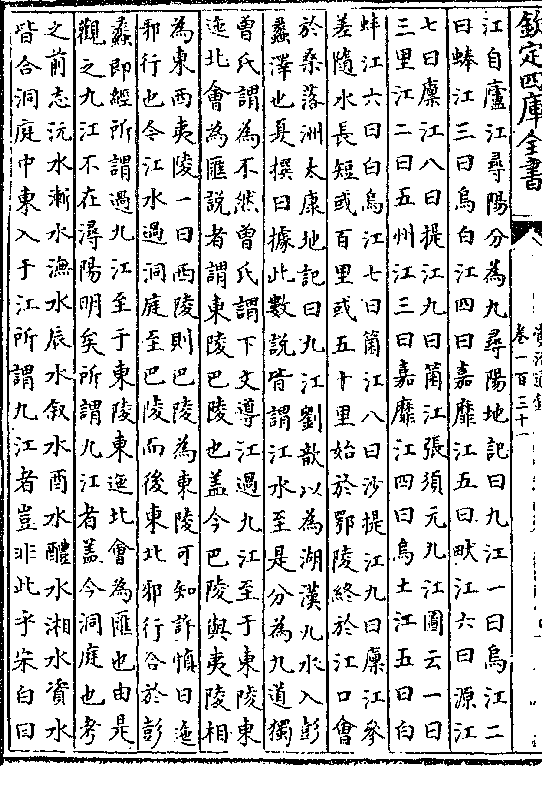 欽定四庫全書
卷一百三十一
江自廬江尋陽分為九尋陽地記曰九江一曰烏江二
曰蜯江三曰烏白江四曰嘉靡江五曰畎江六曰源江
七曰廩江八曰提江九曰箘江張須元九江圖云一曰
三里江二曰五州江三曰嘉靡江四曰烏土江五曰白
蚌江六曰白烏江七曰箘江八曰沙提江九曰廩江參
差隨水長短或百里或五十里始於鄂陵終於江口會
於桑落洲太康地記曰九江劉歆以為湖漢九水入彭
蠡澤也晁撰曰據此數說皆謂江水至是分為九道獨
曾氏謂為不然曾氏謂下文導江過九江至于東陵東
迤北會為匯說者謂東陵巴陵也盖今巴陵與夷陵相
為東西夷陵一曰西陵則巴陵為東陵可知許慎曰迤
邪行也今江水過洞庭至巴陵而後東北邪行合於彭
蠡即經所謂過九江至于東陵東迤北會為匯也由是
觀之九江不在潯陽明矣所謂九江者盖今洞庭也考
之前志沅水漸水潕水辰水叙水酉水醴水湘水資水
皆合洞庭中東入于江所謂九江者豈非此乎宋白曰